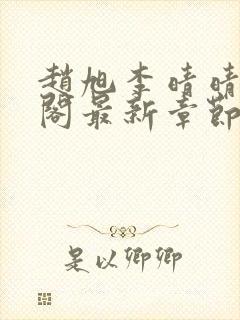 趙旭李晴晴
閣最新章節
是以卿卿